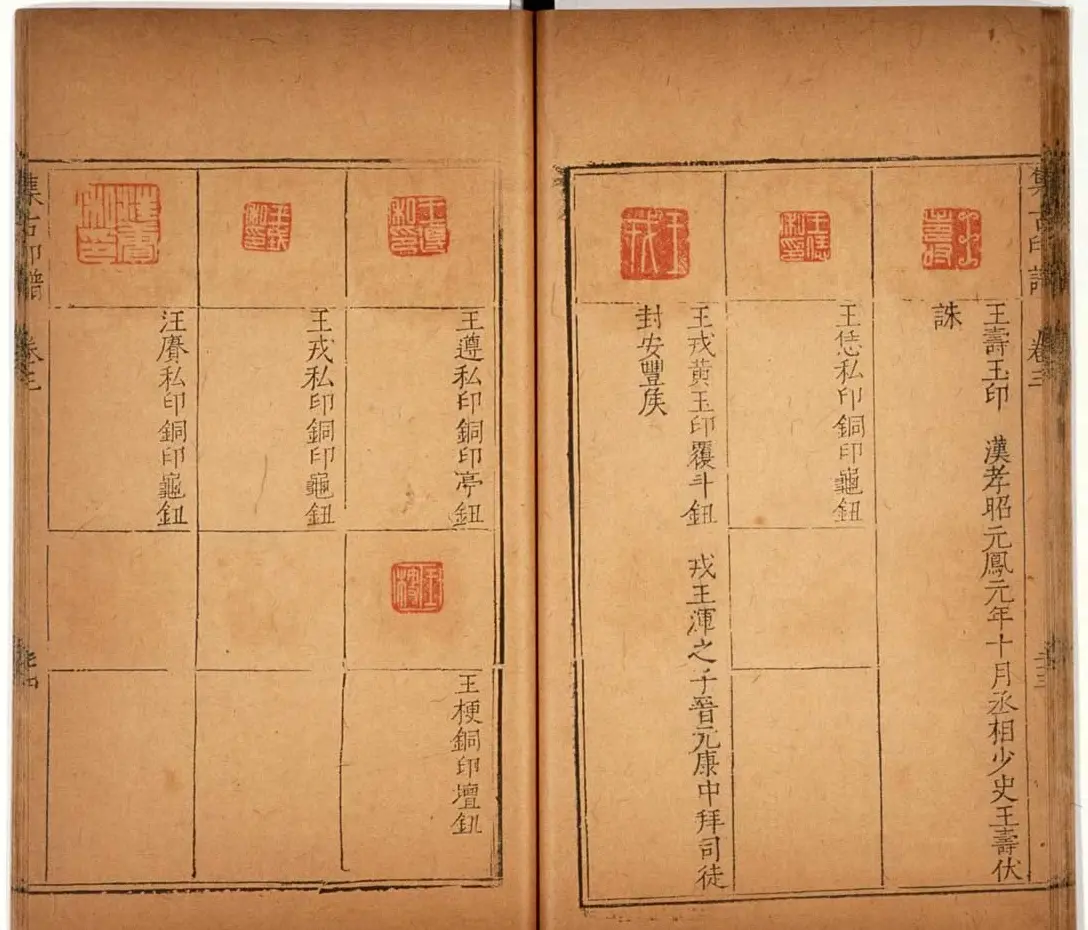 集古印譜 卷三
王壽玉印 漢孝昭元鳳元年十月丞相少史王壽伏
誅
王恁私印銅印龜鈕
王戎黃玉印覆斗鈕 戎王渾之子晉元康中拜司徒
封安豐矦
王戎
王遵私印銅印亭鈕
王梗銅印壇鈕
王戎私印銅印龜鈕
汪賡私印銅印龜鈕
集古印譜 卷三